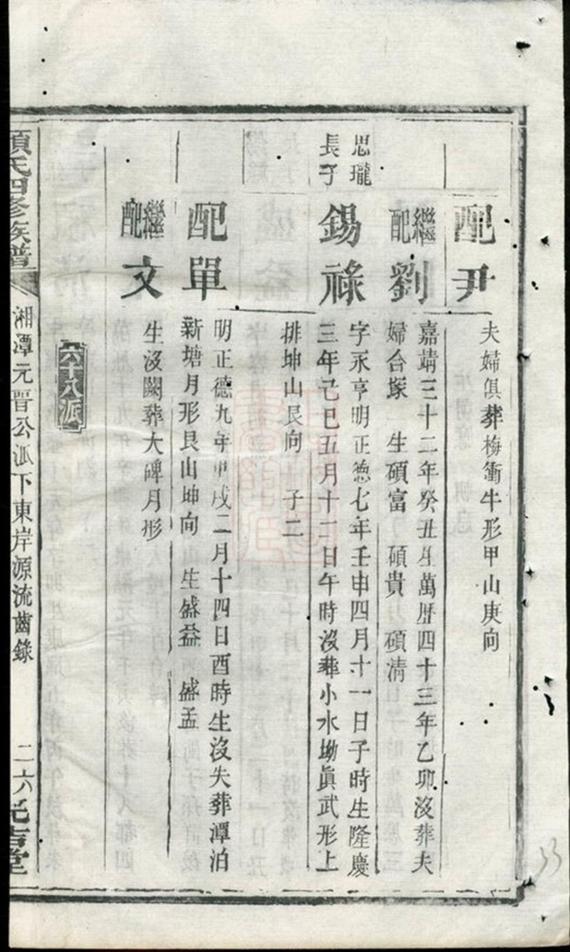 配尹
夫婦俱葬梅衝牛形甲山庚向
繼配劉
嘉靖三十二年癸丑生萬曆四十三年乙卯沒葬夫
婦合塚 生碩富 碩貴 碩清
思瓏長子
錫祿
字永亨明正德七年壬申四月十一日子時生隆慶
三年己巳五月十一日午時沒葬小水坳眞武形上
排坤山艮向 子二
配單
明正德九年甲戌二月十四日酉時生沒失葬潭泊
新塘月形艮山坤向 生盛益 盛孟
繼配文
生沒闕葬大碑月形
六十八派
氏四修族譜
湘潭元晋公派下東岸源流齒錄
二六
堂
33